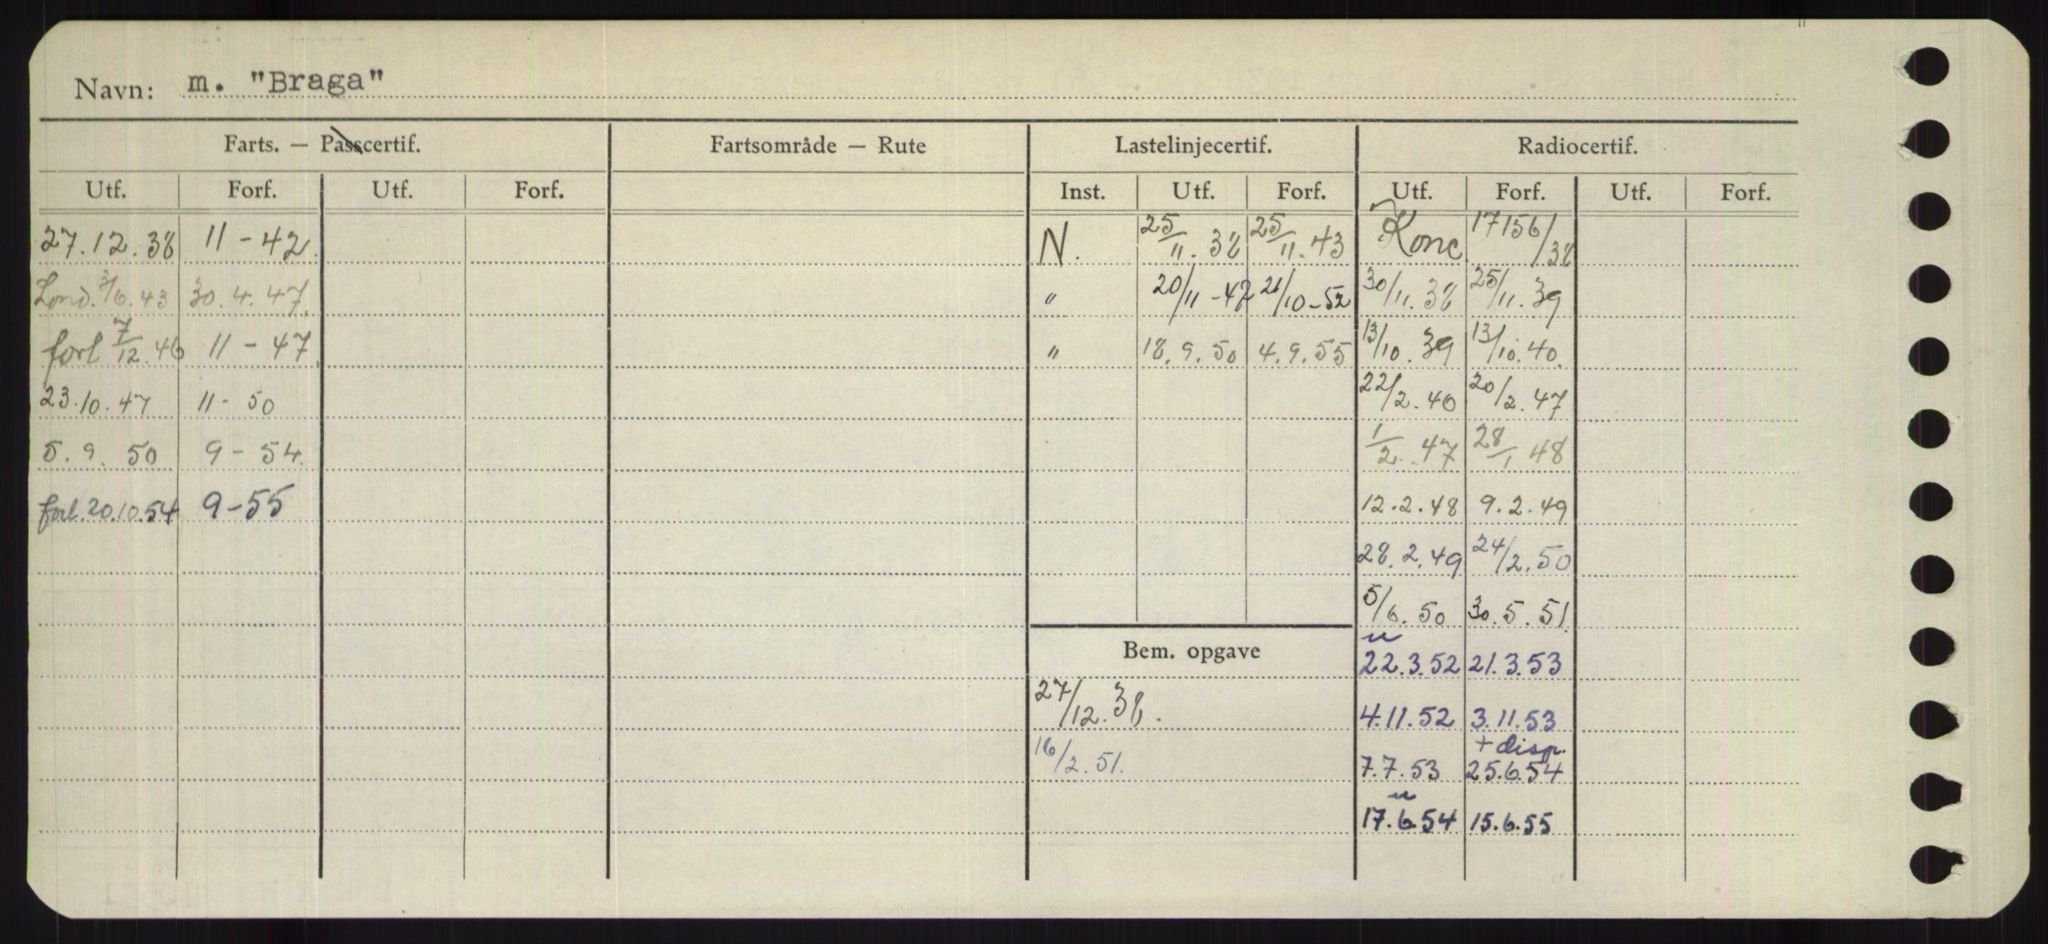 Navn: m. "Braga"
Farts. — Passcertif. Fartsområde — Rute Lastelinjecertif. Radiocertif.
Utf. Forf. Utf. Forf. Inst. Utf. Forf. Utf. Forf. Utf. Forf.
27.12.38 11-42 N. 25/11.38 25/11.43 Konc. 17156/38
Lond. 3/6.43 30.4.47. " 20/11-47 21/10-52 30/11.38 25/11.39
forl 7/12.46 11-47 " 18.9.50 4.9.55 13/10.39 13/10.40.
23.10.47 11-50 22/2.40 20/2.47
5.9.50 9-54. 1/2.47 28/1 48
forl.20.10.54 9-55 12.2.48 9.2.49
28.2.49 24/2.50
5/6.50 30.5.51.
u
Bem. opgave 22.3.52 21.3.53
27/12.38. 4.11.52 3.11.53
+ disp.
16/2.51. 7.7.53 25.6.54
u
17.6.54 15.6.55